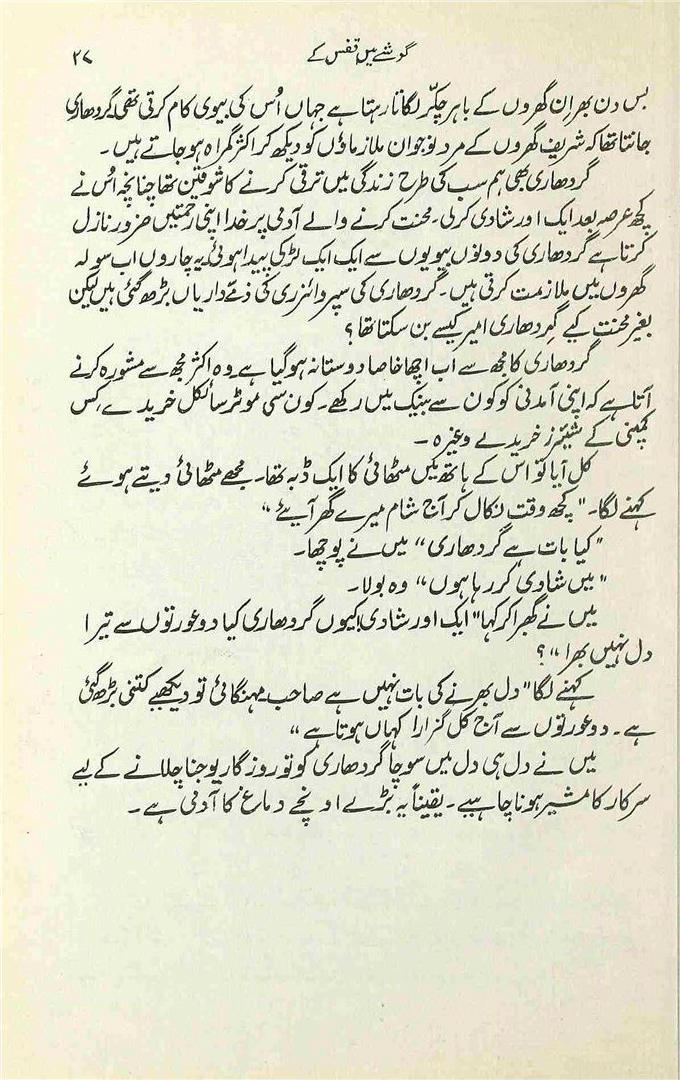 گوشے میں قفس کے ۲۷
بس دن بھر ان گھروں کے باہر چکّر لگاتا رہتا ہے جہاں اُس کی بیوی کام کرتی تھی گردھاری
جانتا تھا کہ شریف گھروں کے مرد نوجوان ملازماؤں کو دیکھ کر اکثر گمراہ ہو جاتے ہیں۔
گردھاری بھی ہم سب کی طرح زندگی میں ترقی کرنے کا شوقین تھا چنانچہ اُس نے
کچھ عرصہ بعد ایک اور شادی کرلی۔ محنت کرنے والے آدمی پر خدا اپنی رحمتیں ضرور نازل
کرتا ہے گردھاری کی دونوں بیویوں سے ایک ایک لڑکی پیدا ہوئی یہ چاروں اب سولہ
گھروں میں ملازمت کرتی ہیں۔ گردھاری کی سپروائزری کی ذمّے داریاں بڑھ گئی ہیں لیکن
بغیر محنت کیے گردھاری امیر کیسے بن سکتا تھا؟
گردھاری کا مجھ سے اب اچھا خاصا دوستانہ ہو گیا ہے وہ اکثر مجھ سے مشورہ کرنے
آتا ہے کہ اپنی آمدنی کو کون سے بینک میں رکھے۔ کون سی موٹر سائکل خریدے کس
کمپنی کے شیئرز خریدے وغیرہ۔
کل آیا تو اس کے ہاتھ میں مٹھائی کا ایک ڈبہ تھا۔ مجھے مٹھائی دیتے ہوئے
کہنے لگا۔ "کچھ وقت نکال کر آج شام میرے گھر آیئے"
"کیا بات ہے گردھاری" میں نے پوچھا۔
"میں شادی کر رہا ہوں" وہ بولا۔
میں نے گھبرا کر کہا "ایک اور شادی! کیوں گردھاری کیا دو عورتوں سے تیرا
دل نہیں بھرا"؟
کہنے لگا "دل بھرنے کی بات نہیں ہے صاحب مہنگائی تو دیکھیے کتنی بڑھ گئی
ہے۔ دو عورتوں سے آج کل گزارا کہاں ہوتا ہے"
میں نے دل ہی دل میں سوچا گردھاری کو تو روزگار یوجنا چلانے کے لیے
سرکار کا مشیر ہونا چاہیے۔ یقیناً یہ بڑے اونچے دماغ کا آدمی ہے۔